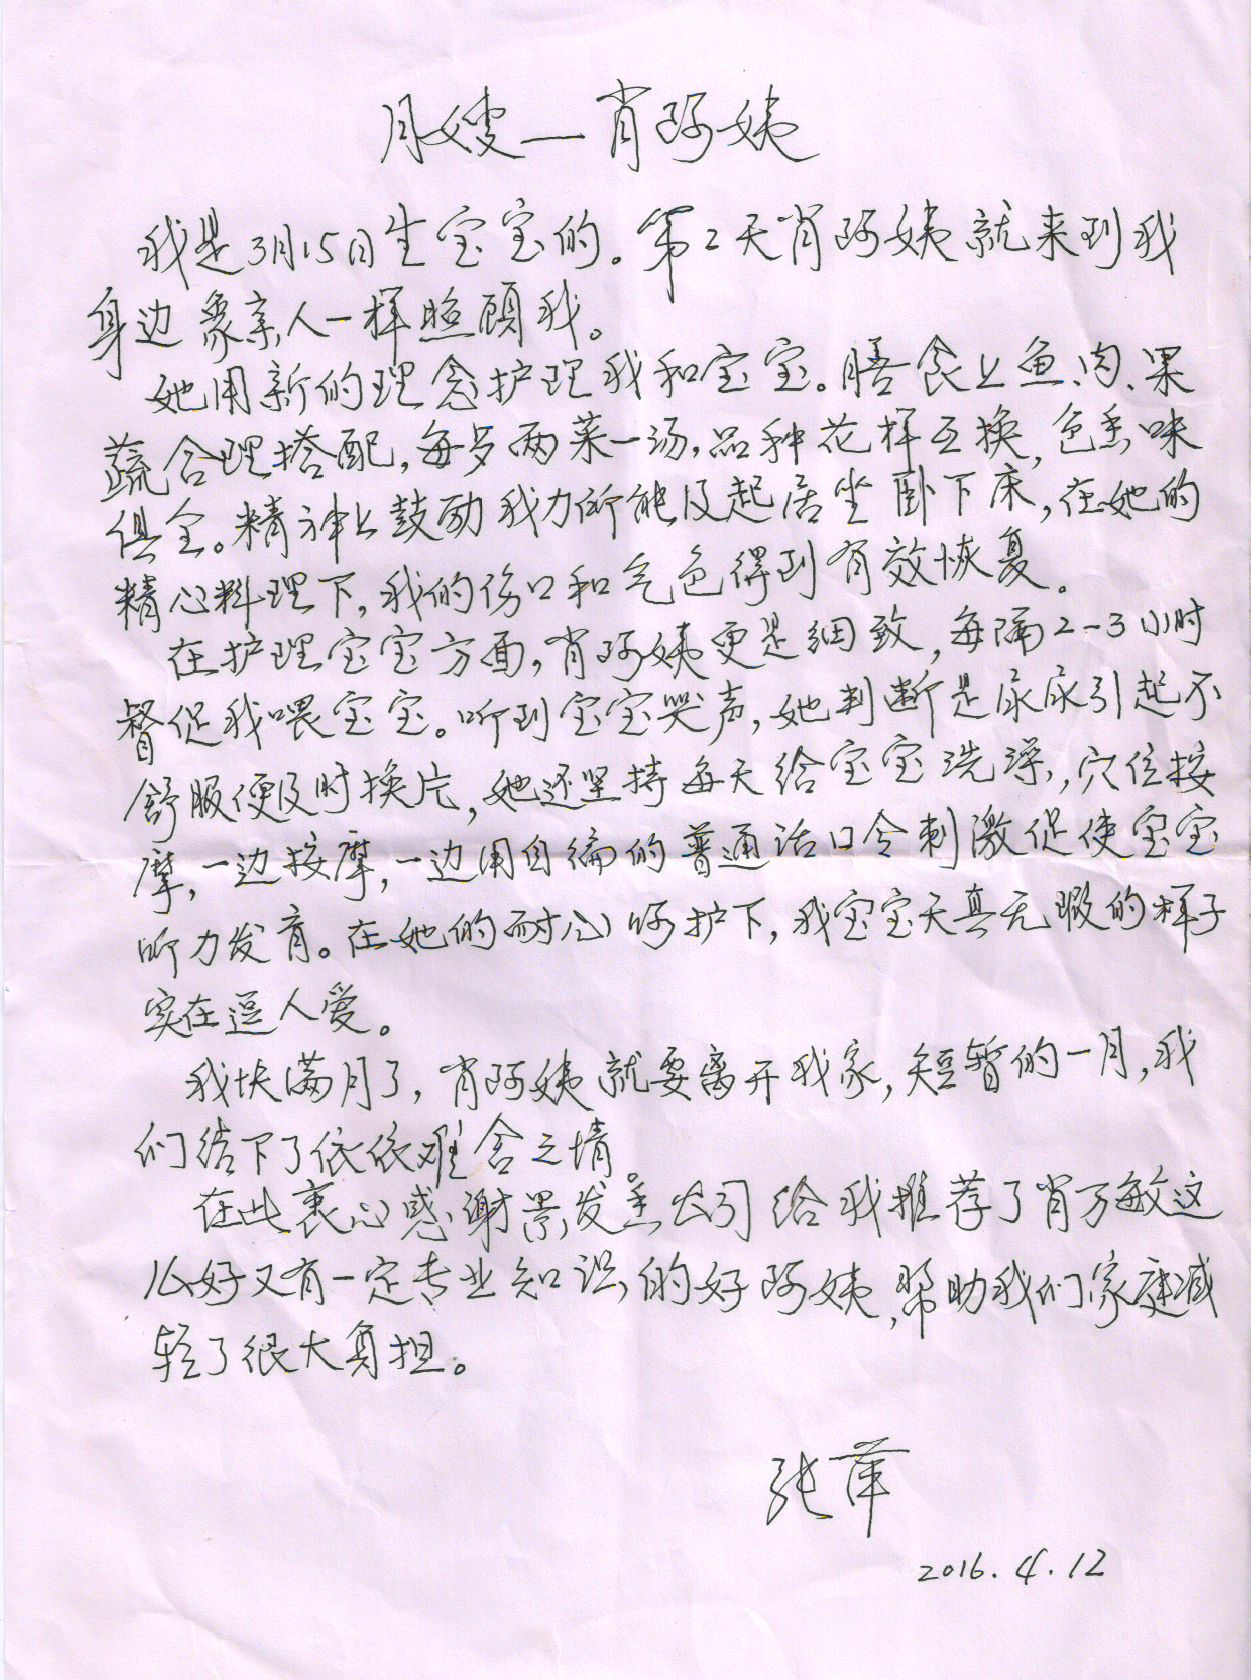 月嫂—肖阿姨
我是3月15日生宝宝的。第2天肖阿姨就来到我
身边象亲人一样照顾我。
她用新的理念护理我和宝宝。膳食上鱼、肉、果
蔬合理搭配,每歺两菜一汤,品种花样互换,色香味
俱全。精神上鼓励我力所能及起居坐卧下床,在她的
精心料理下,我的伤口和气色得到有效恢复。
在护理宝宝方面,肖阿姨更是细致,每隔2-3小时
督促我喂宝宝。听到宝宝哭声,她判断是尿尿引起不
舒服便及时换片,她还坚持每天给宝宝洗澡,穴位按
摩,一边按摩,一边用自编的普通话口令刺激促使宝宝
听力发育。在她的耐心呵护下,我宝宝天真无瑕的样子
实在逗人爱。
我快满月了,肖阿姨就要离开我家,短暂的一月,我
们结下了依依难舍之情。
在此衷心感谢景发公司给我推荐了肖万敏这
么好又有一定专业知识的好阿姨,帮助我们家庭减
轻了很大负担。
张萍
2016.4.12